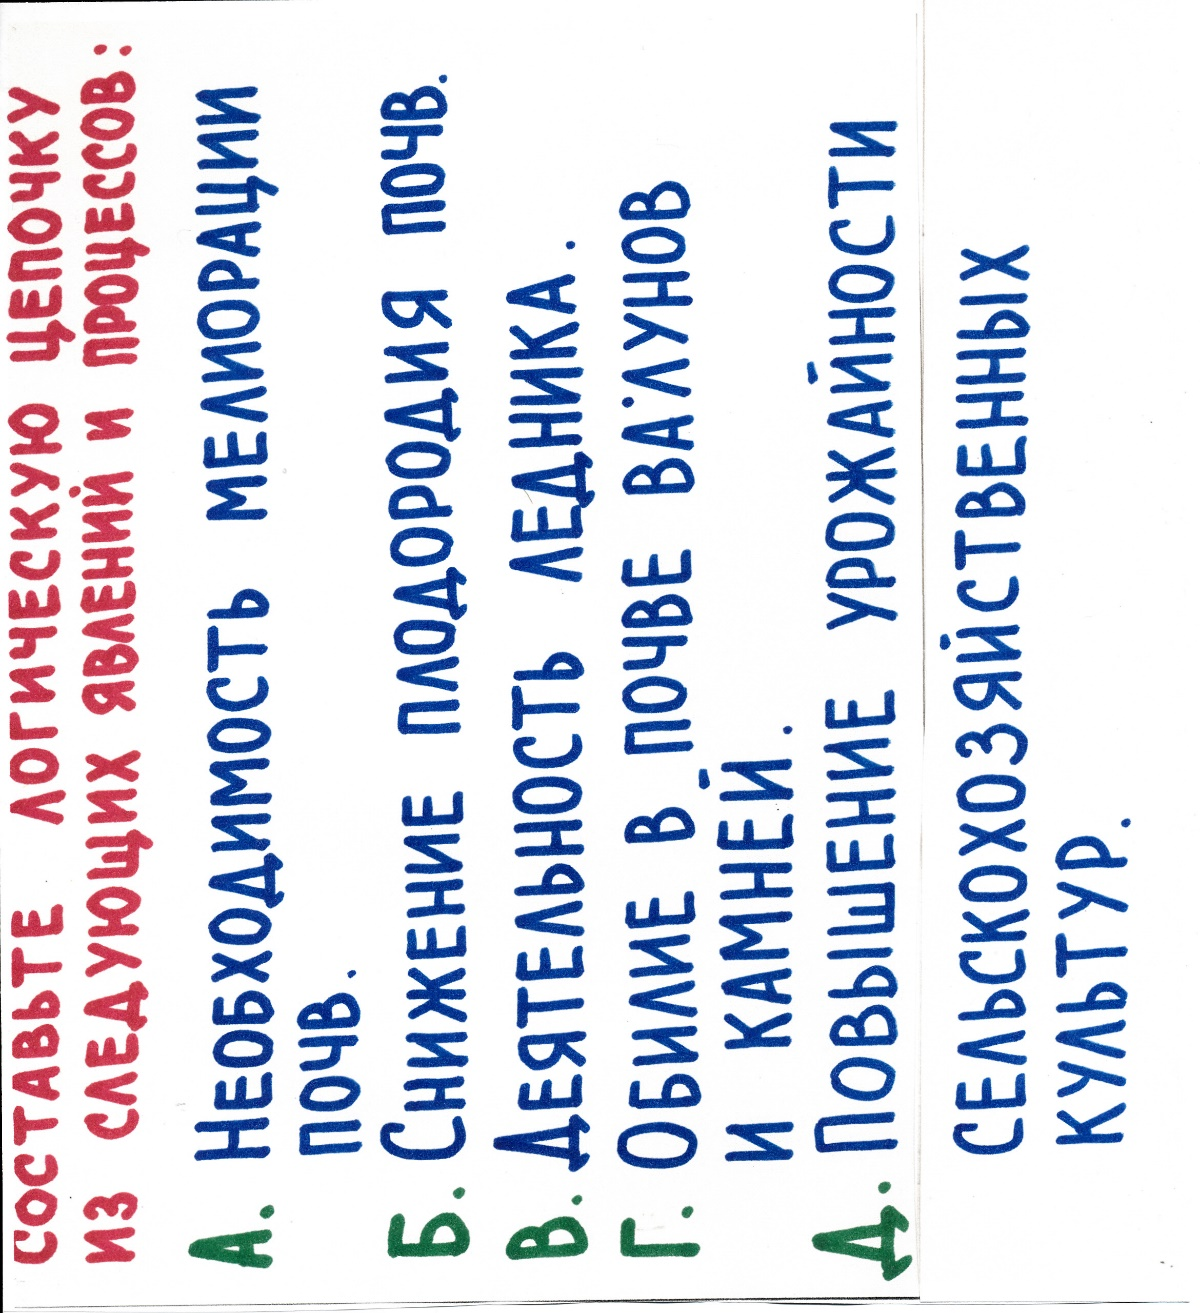 СОСТАВЬТЕ ЛОГИЧЕСКУЮ ЦЕПОЧКУ
ИЗ СЛЕДУЮЩИХ ЯВЛЕНИЙ И ПРОЦЕССОВ:
А. НЕОБХОДИМОСТЬ МЕЛИОРАЦИИ
ПОЧВ.
Б. СНИЖЕНИЕ ПЛОДОРОДИЯ ПОЧВ.
В. ДЕЯТЕЛЬНОСТЬ ЛЕДНИКА.
Г. ОБИЛИЕ В ПОЧВЕ ВАЛУНОВ
И КАМНЕЙ.
Д. ПОВЫШЕНИЕ УРОЖАЙНОСТИ
СЕЛЬСКОХОЗЯЙСТВЕННЫХ
КУЛЬТУР.